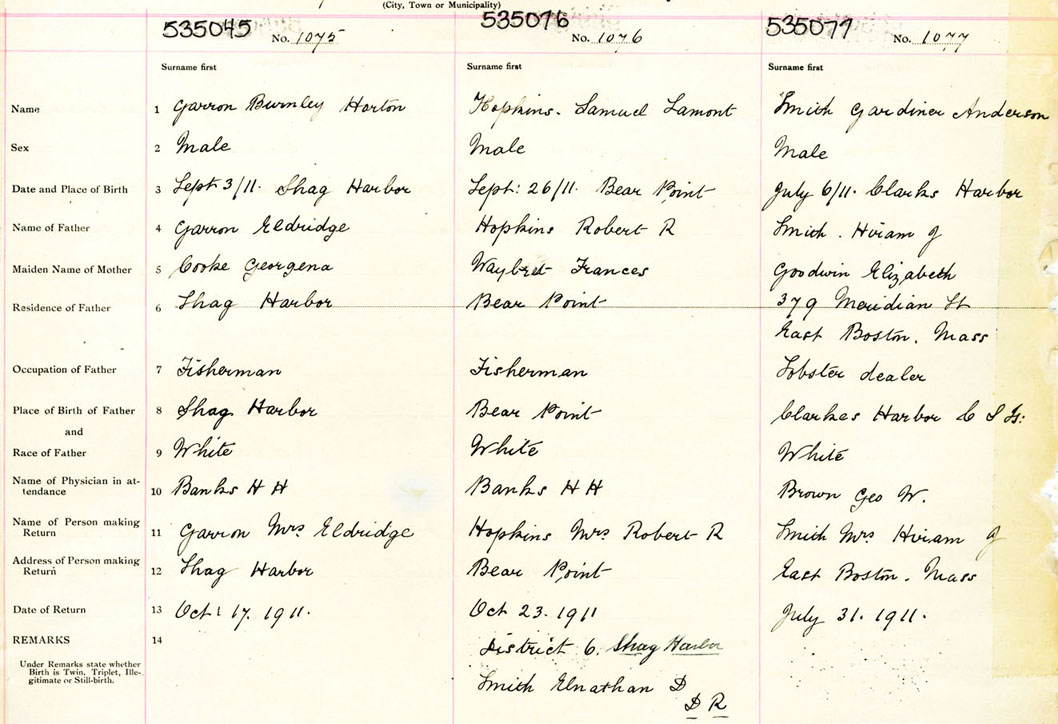 (City, Town or Municipality)
535045 No. 1075
535076 No. 1076
535077 No. 1077
Surname first Surname first Surname first
Name 1 Garron Burnley Horton Hopkins. Samuel Lamont Smith Gardiner Anderson
Sex 2 Male Male Male
Date and Place of Birth 3 Sept 3/11. Shag Harbor Sept: 26/11. Bear Point July 6/11. Clarks Harbor
Name of Father 4 Garron Eldridge Hopkins Robert R Smith. Hiram J
Maiden Name of Mother 5 Cooke Georgena Waybret Frances Goodwin Elizabeth
Residence of Father 6 Shag Harbor Bear Point 379 Meridian St
East Boston. Mass
Occupation of Father 7 Fisherman Fisherman Lobster dealer
Place of Birth of Father 8 Shag Harbor Bear Point Clarkes Harbor C S Is:
and
Race of Father 9 White White White
Name of Physician in at-
tendance 10 Banks H H Banks H H Brown Geo W.
Name of Person making
Return 11 Garron Mrs Eldridge Hopkins Mrs Robert R Smith Mrs Hiram J
Address of Person making
Return 12 Shag Harbor Bear Point East Boston. Mass
Date of Return 13 Oct: 17. 1911. Oct 23. 1911 July 31. 1911.
REMARKS 14 District 6. Shag Harbor
Under Remarks state whether
Birth is Twin, Triplet, Ille-
gitimate or Still-birth.
Smith Elnathan D
D R